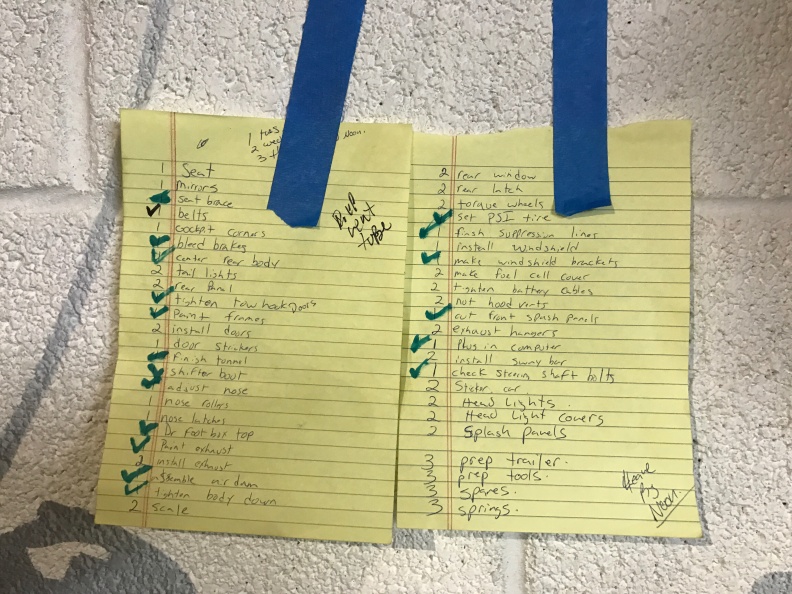 1 tues noon.
2 wed
3 th
1 Seat
1 mirrors
seat brace
belts
1 cockpit corners
bleed brakes
center rear body
2 tail lights
2 rear panel
tighten tow hook
Paint frames
2 install doors
1 door strikers
finish tunnel
shifter boot
adjust nose
1 nose rollers
1 nose latches
Dr foot box top
Paint exhaust
2 install exhaust
assemble air dam
tighten body down
2 scale
vent
tube
2 rear window
2 rear latch
2 torque wheels
set PSI tire
finish suppression lines
1 install windshield
1 make windshield brackets
2 make fuel cell cover
2 tighten battery cables
2 nut hood vints
cut front splash panels
2 exhaust hangers
1 Plug in computer
2 install sway bar
1 check steering shaft bolts
2 Sticker car
2 Head Lights
2 Head Light covers
2 Splash panels
3 prep trailer.
3 prep tools.
3 spares.
3 springs.
Noon.